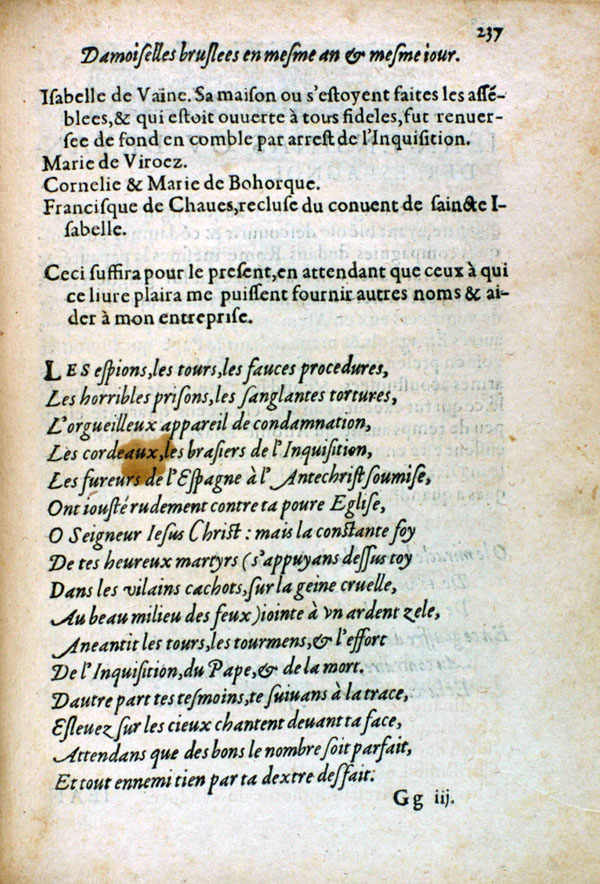 237
Damoiselles bruslees en mesme an & mesme iour.
Isabelle de Vaine. Sa maison ou s'estoyent faites les assé-
blees, & qui estoit ouuerte à tous fideles, fut renuer-
see de fond en comble par arrest de l'Inquisition.
Marie de Viroez.
Cornelie & Marie de Bohorque.
Francisque de Chaues, recluse du conuent de saincte I-
sabelle.
Ceci suffira pour le present, en attendant que ceux à qui
ce liure plaira me puissent fournir autres noms & ai-
der à mon entreprise.
LES espions, les tours, les fauces procedures,
Les horribles prisons, les sanglantes tortures,
L'orgueilleux appareil de condamnation,
Les cordeaux, les brasiers de l'Inquisition,
Les fureurs de l'Espagne à l'Antechrist soumise,
Ont iousté rudement contre ta poure Eglise,
O Seigneur Iesus Christ : mais la constante foy
De tes heureux martyrs (s'appuyans dessus toy
Dans les vilains cachots, sur la geine cruelle,
Au beau milieu des feux) iointe à vn ardent zele,
Aneantit les tours, les tourmens, & l'effort
De l'Inquisition, du Pape, & de la mort.
Dautre part tes tesmoins, te suiuans à la trace,
Esleuez sur les cieux chantent deuant ta face,
Attendans que des bons le nombre soit parfait,
Et tout ennemi tien par ta dextre desfait.
Gg iij.